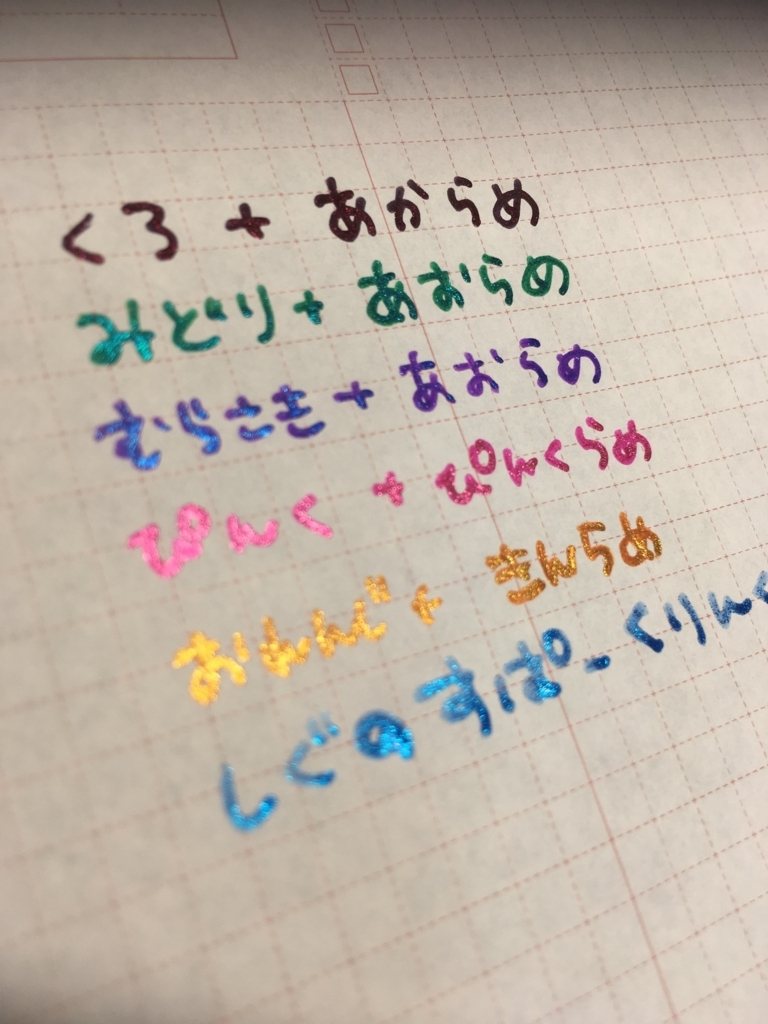 くろ + あからめ
みどり + あおらめ
むらさき + あおらめ
ぴんく + ぴんくらめ
おれんじ + きんらめ
しぐのすぱーくりんく